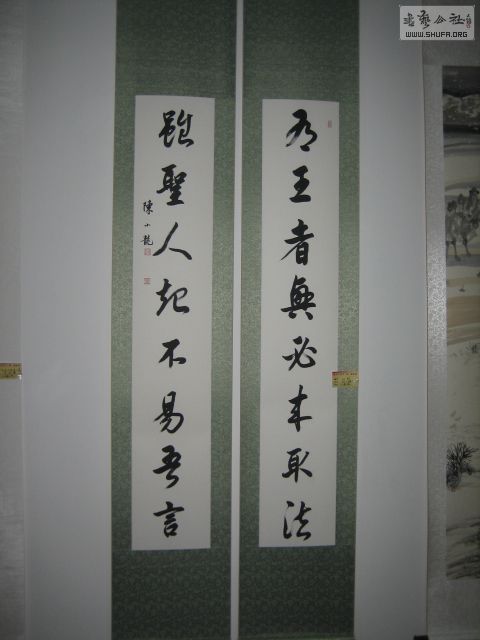 有王者興必來取法
雖聖人起不易吾言
陳小龍
書藝公社
WWW.SHUFA.ORG